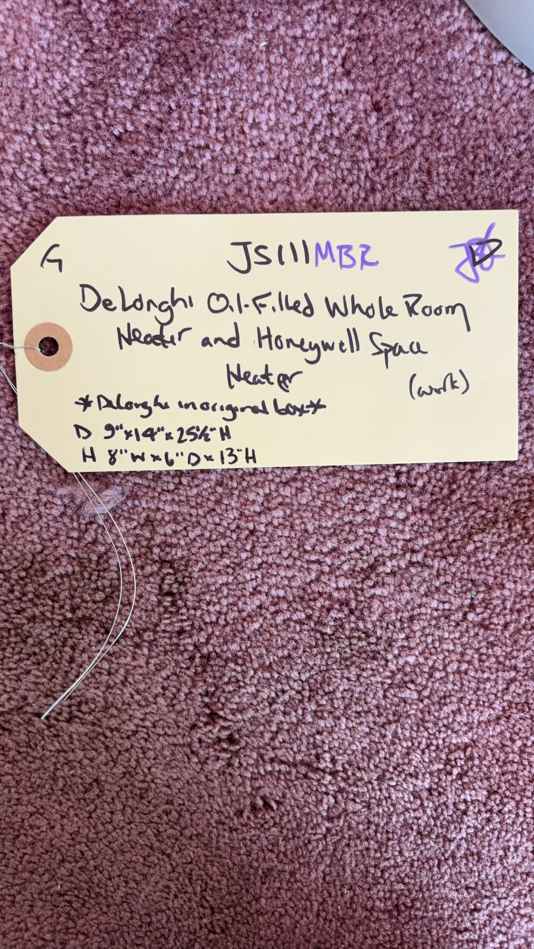 G JS111MBR
DeLonghi Oil-Filled Whole Room
Heater and Honeywell Space
Heater (work)
*DeLonghi in original box*
D 9"x14"x25½"H
H 8"W x 6"D x 13"H